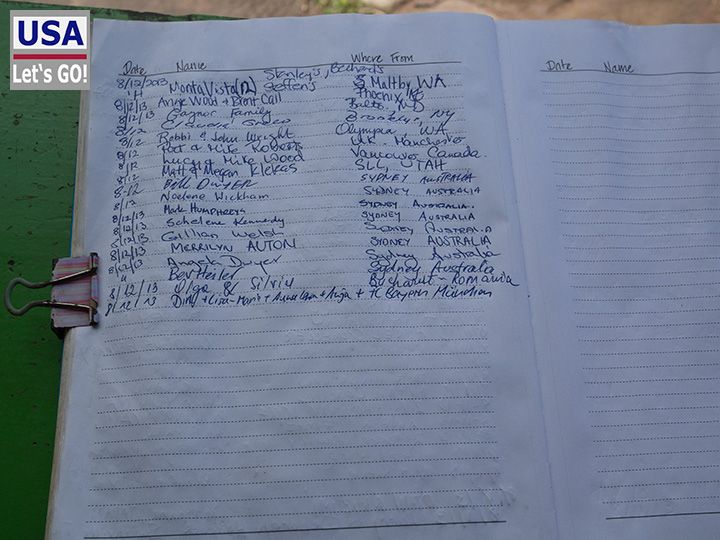 USA
Let's GO!
Date Name Where From
8/12/2013 MontaVista (12) Stanley's, Bechards S Maltby WA
" Steffen's Phoenix
8/12/13 Angie Wood + Brent Call Balto MD
8/12/13 Gaynor Family Brooklyn, NY
8/12 Olympia, WA
8/12 Robbi & John Wright U.K. Manchester
8/12 Pat & Mike Roberts Vancouver Canada.
8/12 Lucy & Mike Wood SLC UTAH
8/12 Matt & Megan Klekas SYDNEY AUSTRALIA
8-12 Bill DWYER SYDNEY AUSTRALIA
8/12 Noelene Wickham SYDNEY AUSTRALIA.
8/12/13 Mark HUMPHREYS SYDNEY AUSTRALIA
8/12/13 Schelene Kennedy SYDNEY AUSTRALIA
8/12/13. Gillian Welsh SYDNEY AUSTRALIA
8/12/13 MERRILYN AUTON Sydney Australia
8/12/13 Angela Dwyer Sydney Australia
" Bev Hesler Bucharest - Romania
8/12/13 Olga & Silviu
8/12/13 Dirk + Lisa-Marie + + Anja + FC Bayern München
Date Name